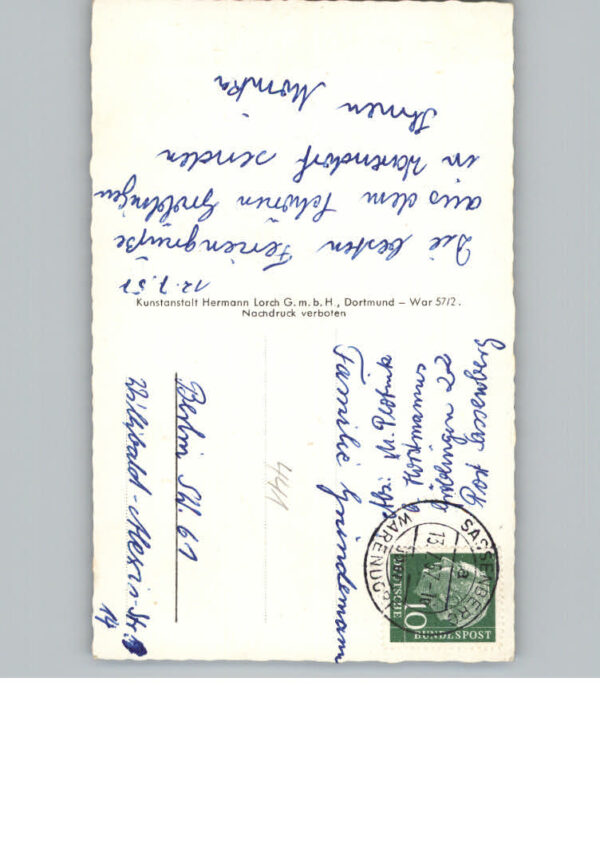 12.7.57
Die besten Feriengrüße
aus dem schönen
in Warendorf senden
Ihnen Monika
Kunstanstalt Hermann Lorch G.m.b.H., Dortmund – War 57/2.
Nachdruck verboten
Familie Gründemann
Berlin SW. 61
Willibald-Alexis-Str.
14
Abs. M.
441
SASSENBERG
WARENDORF
13.7.57
a
10
DEUTSCHE
BUNDESPOST